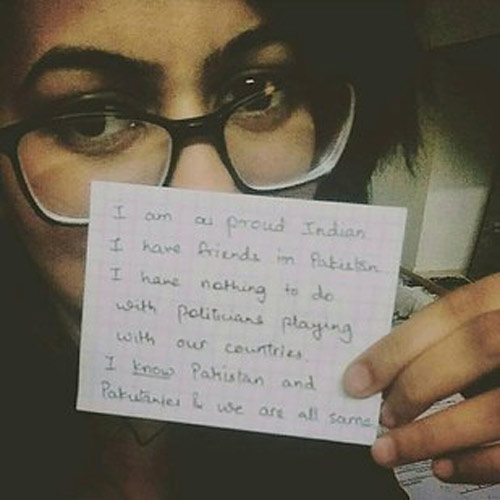 I am a proud Indian
I have friends in Pakistan
I have nothing to do
with politicians playing
with our countries.
I know Pakistan and
Pakistanies & we are all same